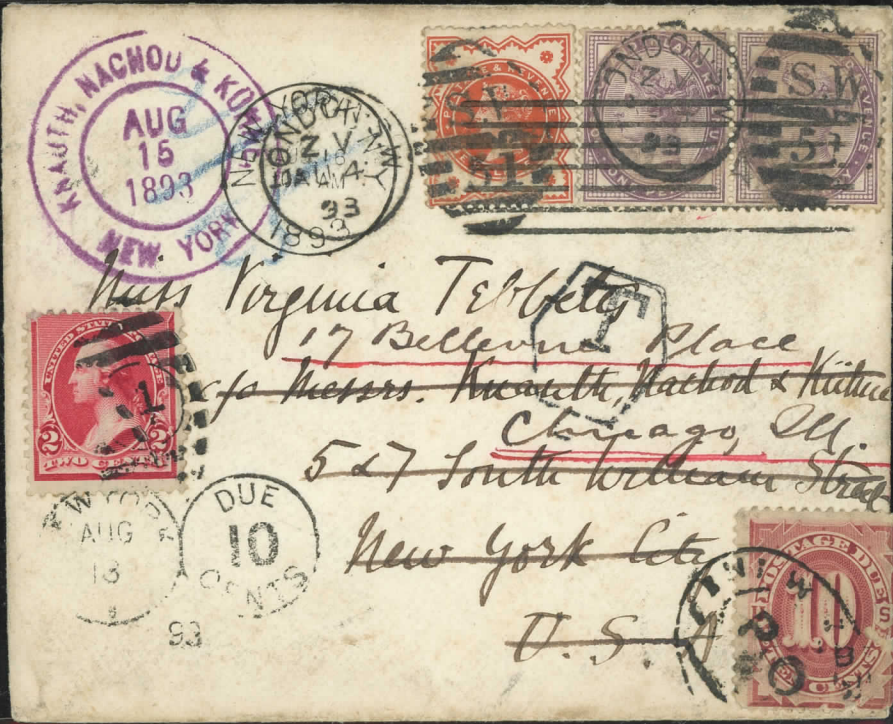 KNAUTH, NACHOD & KÜHNE
AUG
15
1893
NEW YORK
NEW YORK, N.Y.
1893
LONDON
Z V
AU 4
93
LONDON
Z V
93
S.W
51
S.W
52
Miss Virginia Tebbets
17 Bellevue Place
T
c/o Messrs. Knauth, Nachod & Kühne
Chicago, Ill.
527 South William Street
New York City
U. S. A
UNITED STATES POSTAGE
2 2
TWO CENTS
1
NEW YORK
AUG
13
93
DUE
10
CENTS
POSTAGE DUE
10